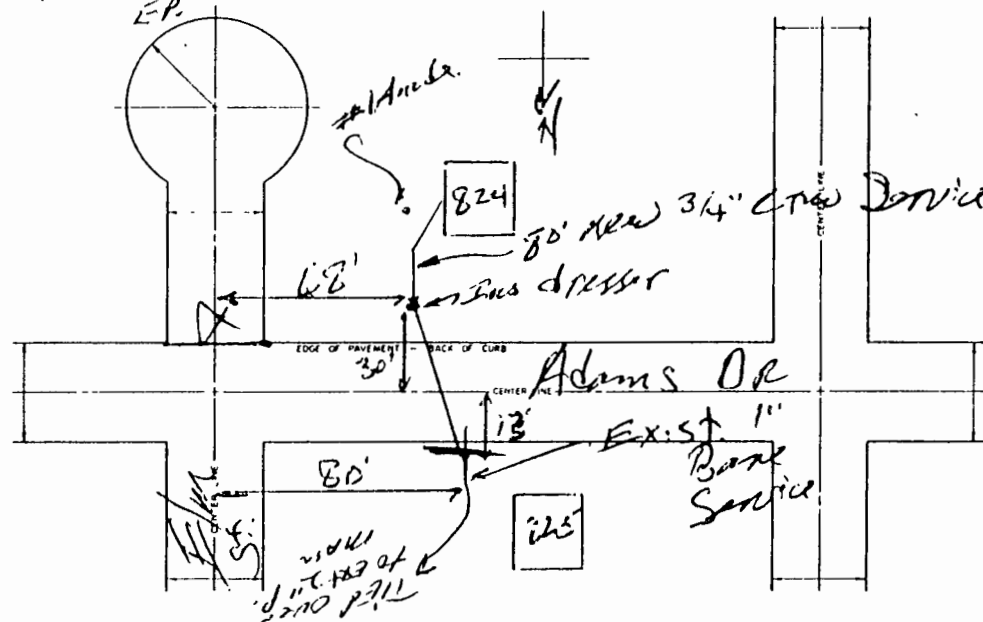 E.P.
#1 Anode
N
824
80' New 3/4" CTW Service
68'
Ins dresser
EDGE OF PAVEMENT - BACK OF CURB
30'
CENTER LINE
Adams DR
CENTER LINE
Exist. 1"
Bare
Service
80'
CENTER LINE
Elm
St.
Tied over
to Ext 2" P.
main